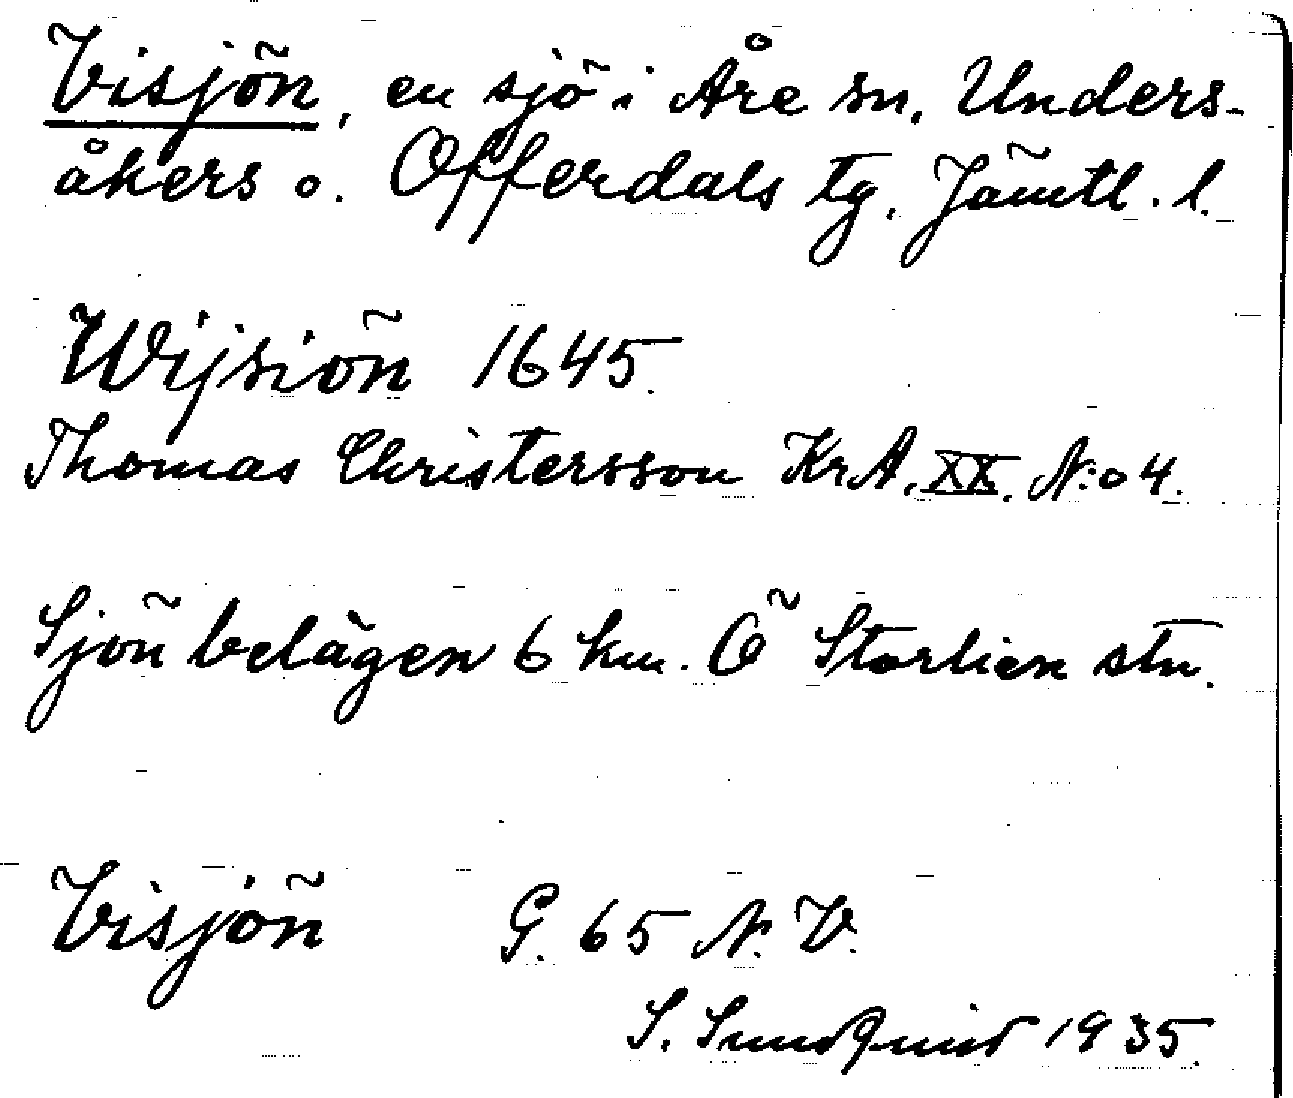 Visjön, en sjö i Åre sn, Unders-
åkers o. Offerdals tg, Jämtl. l.
Wijsiön 1645.
Thomas Christersson KrA. XX. N:o 4.
Sjön belägen 6 km. Ö Storlien stn.
Visjön G. 65 N. V.
S. Sundquist 1935